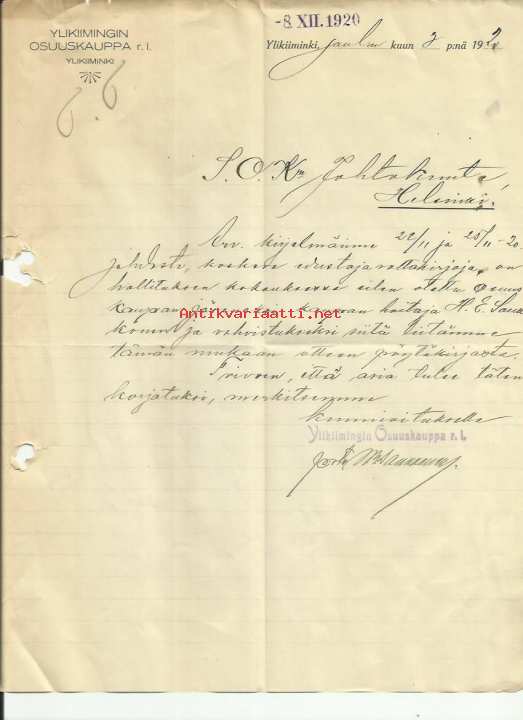 YLIKIIMINGIN
OSUUSKAUPPA r. l.
YLIKIIMINKI
-8. XII. 1920
Ylikiiminki, joulu kuun 2 p:nä 192
S. O. K:n Johtokunta,
Helsinki.
Arv. kirjelmänne 22/11 ja 25/11 -20
johdosta, koskeva edustajavaltakirjoja, on
hallituksen kokouksessa eilen otettu Osuus
kaupan jäseneksi kaupan hoitaja H. E.
ja vahvistukseksi siitä liitämme
tämän mukaan otteen pöytäkirjasta.
Toivoen, että asia tulee täten
korjatuksi, merkitsemme
kunnioituksella
Ylikiimingin Osuuskauppa r. l.
Antikvariaatti.net